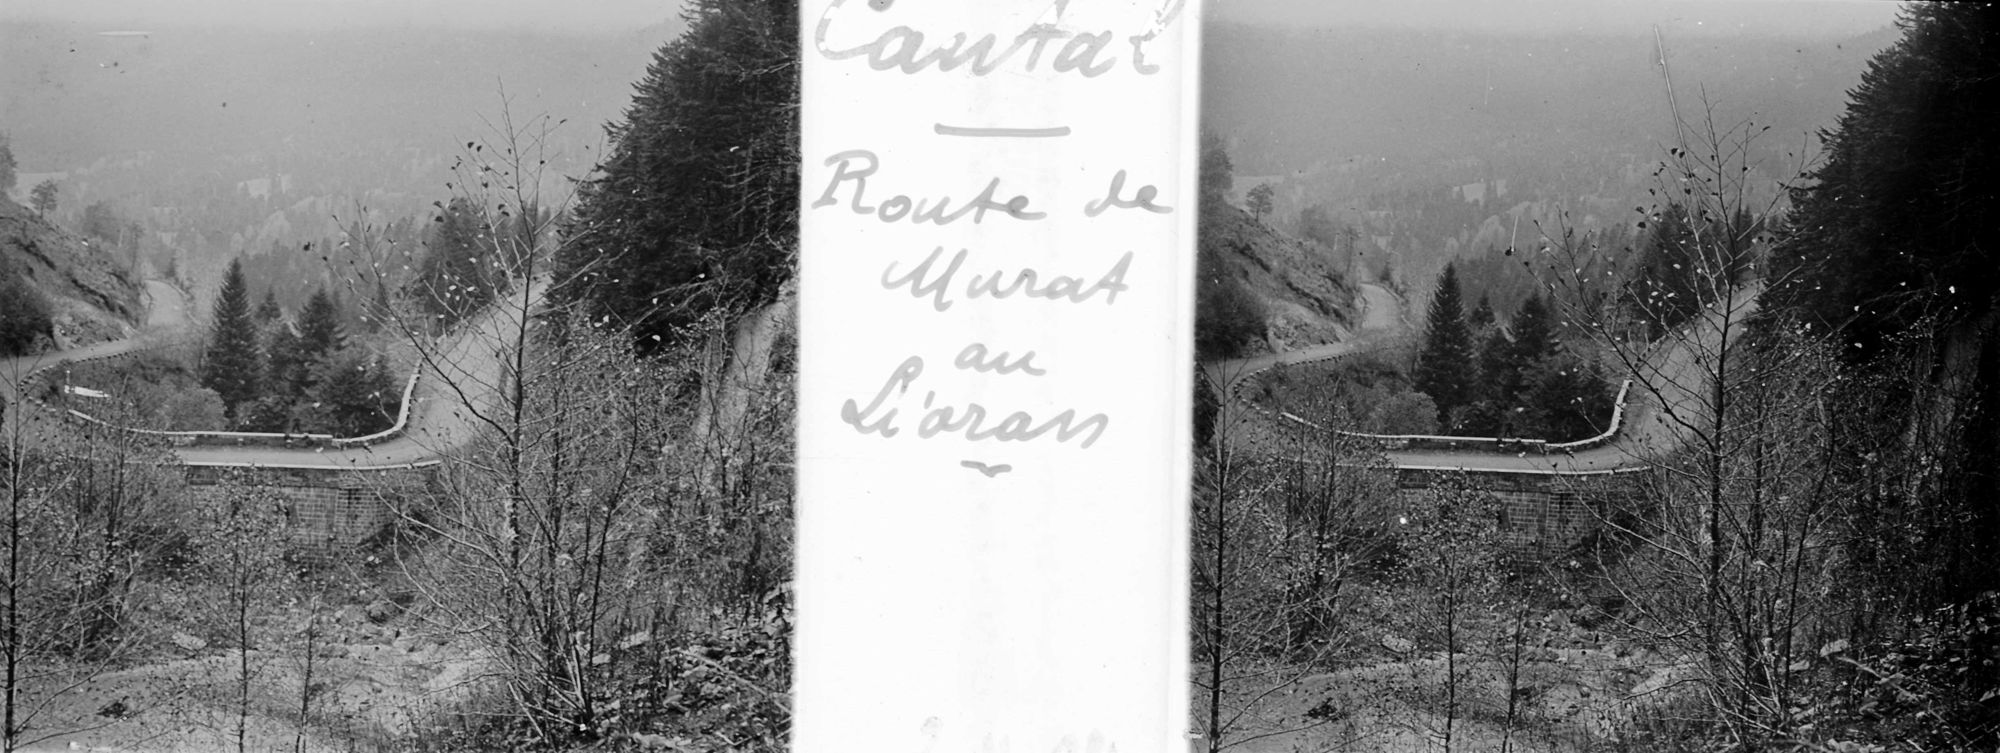 Cantal
Route de
Murat
au
Lioran